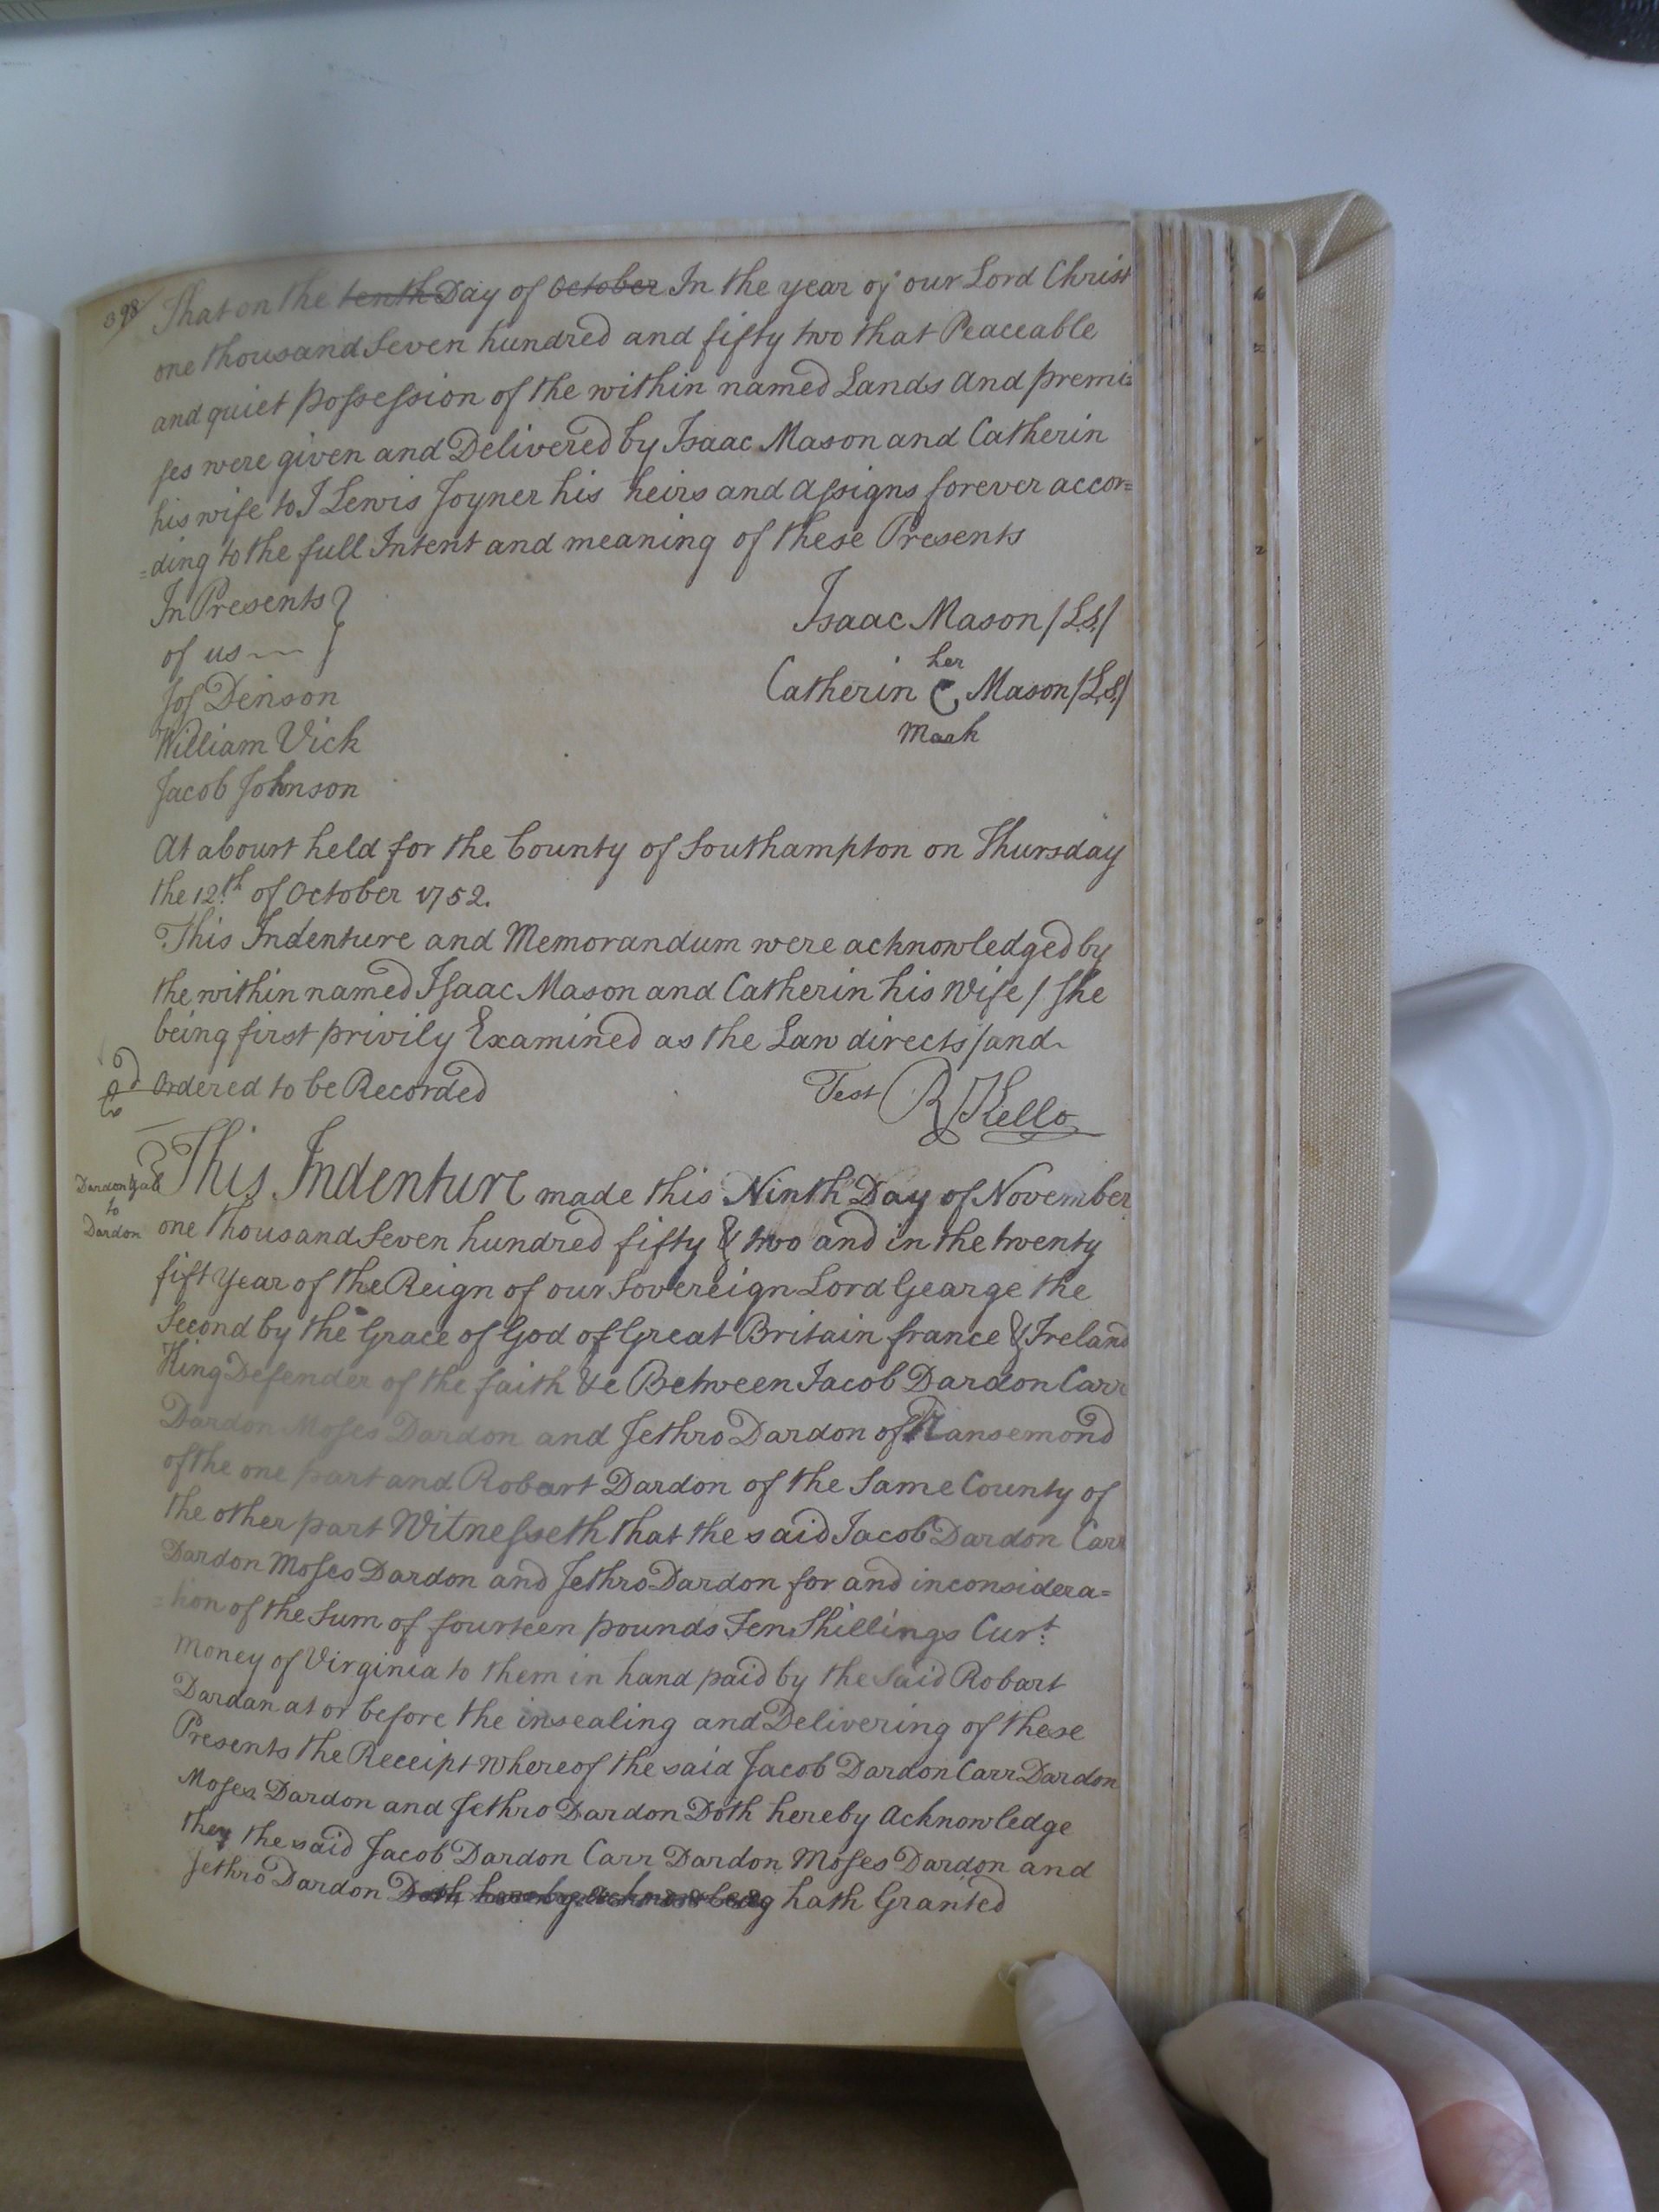 398
That on the tenth Day of October In the year of our Lord Christ
one thousand Seven hundred and fifty two that Peaceable
and quiet possession of the within named Lands and premi=
ses were given and Delivered by Isaac Mason and Catherin
his wife to J Lewis Joyner his heirs and assigns forever accor=
=ding to the full Intent and meaning of these Presents
In Presents
of us
Isaac Mason /L.S./
her
Jos Denson
Catherin C Mason /L.S/
William Vick
Mark
Jacob Johnson
At a Court held for the County of Southampton on Thursday
the 12th of October 1752.
This Indenture and Memorandum were acknowledged by
the within named Isaac Mason and Catherin his Wife / She
being first privily Examined as the Law directs / and
Ordered to be Recorded
Test R Kello
Dardon &als
to
Dardon
This Indenture made this Ninth Day of November
one thousand Seven hundred fifty & two and in the twenty
fift Year of the Reign of our Sovereign Lord Gearge the
Second by the Grace of God of Great Britain france & Ireland
King Defender of the faith &c Between Jacob Dardon Carr
Dardon Moses Dardon and Jethro Dardon of Nansemond
of the one part and Robart Dardon of the Same County of
the other part Witnesseth that the said Jacob Dardon Carr
Dardon Moses Dardon and Jethro Dardon for and in considera=
=tion of the Sum of fourteen pounds Ten Shillings Curt.
Money of Virginia to them in hand paid by the Said Robart
Dardan at or before the insealing and Delivering of these
Presents the Receipt whereof the said Jacob Dardon Carr Dardon
Moses Dardon and Jethro Dardon Doth hereby Acknowledge
they the said Jacob Dardon Carr Dardon Moses Dardon and
Jethro Dardon Doth hereby acknowledg hath Granted